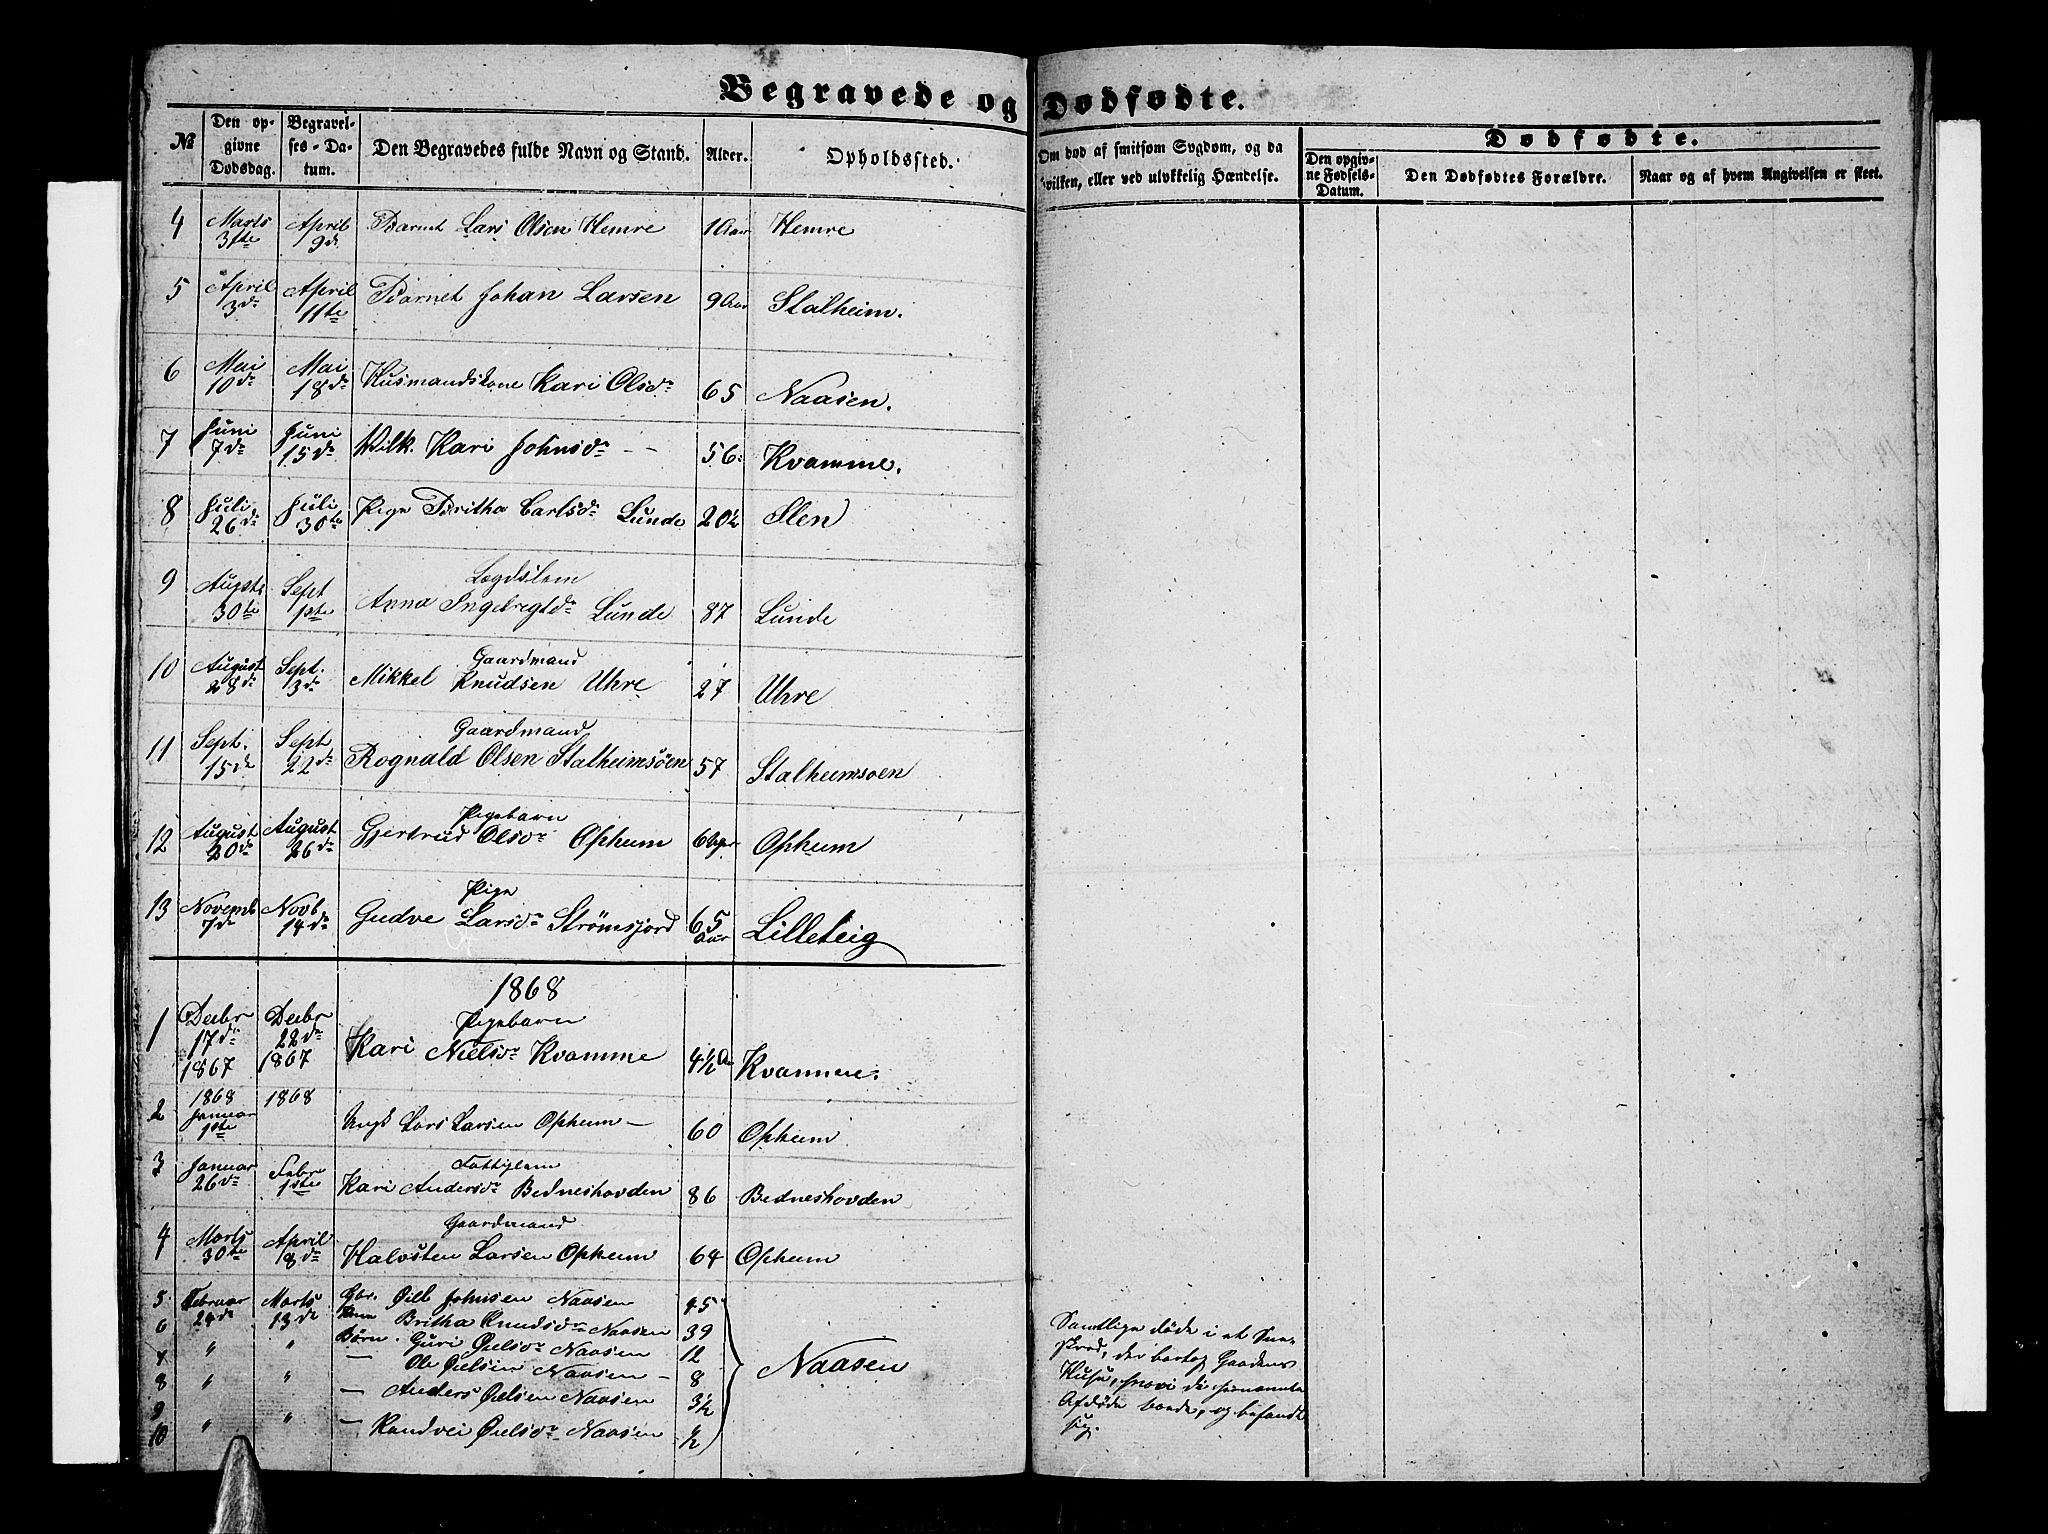 Begravede og Dødfødte.
№ Den opgivne Dødsdag. Begravelses-Datum. Den Begravedes fulde Navn og Stand. Alder. Opholdssted. Om død af smitsom Sygdom, og da hvilken, eller ved ulykkelig Hændelse. Dødfødte. Den opgivne Fødsels-Datum. Den Dødfødtes Forældre. Naar og af hvem Angivelsen er skeet.
4 Marts 31te April 9d Barnet Lars Olsen Hemre 1 Aar Hemre
5 April 3de April 11te Barnet Johan Larsen 9 Aar Stalheim.
6 Mai 10de Mai 18de Husmandskone Kari Olsdr 65 Naasen.
7 Juni 7de Juni 15de Pilk. Kari Johnsdr – – 56 Kvamme.
8 Juli 26de Juli 30te Pige Britha Carlsdr Lunde 20½ Slen
9 Augst 30te Sept 1ste Lægdslem
Anna Ingebregtdr Lunde 87 Lunde
10 August 28de Sept. 3de Gaardmand
Mikkel Knudsen Uhre 27 Uhre
11 Sept. 15de Sept 22de Gaardmand
Rognald Olsen Stalheimsöen 57 Stalheimsoen
12 August 20de August 26de Pigebarn
Gjertrud Olsdr Opheim 6 Opheim
13 Novemb 7de Novb 14de Pige
Gudve Larsdr Strømsfjord 65 Aar Lilleteig
1868
1 Decbr 17de 1867 Decbr 22de 1867 Pigebarn
Kari Nielsdr Kvamme 4½ Kvamme.
2 1868 Januar 1ste 1868 Ungk Lars Larsen Opheim – 60 Opheim
3 Januar 26de Febr 1ste Fattiglem
Kari Andersdr Bedneshovden 86 Bedneshovden
4 Marts 30te April 8de Gaardmand
Halvsten Larsen Opheim 64 Opheim
5 Februar 24de Marts 13de Gbr. Öill Johnsen Naasen 45
6 Kone Britha Knudsdr Naasen 39
" " Børn. Guri Øielsdr Naasen 12 Naasen
8 " " — Ole Øielsen Naasen – 8
9 " " — Anders Øielsen Naasen 3½
10 " " — Randvei Øielsdr Naasen ½
Samtlige døde i et Snee-
skred, der bortog Gaardens
Huse, hvori de fornævnte
Afdøde boede, og befandt
sig.